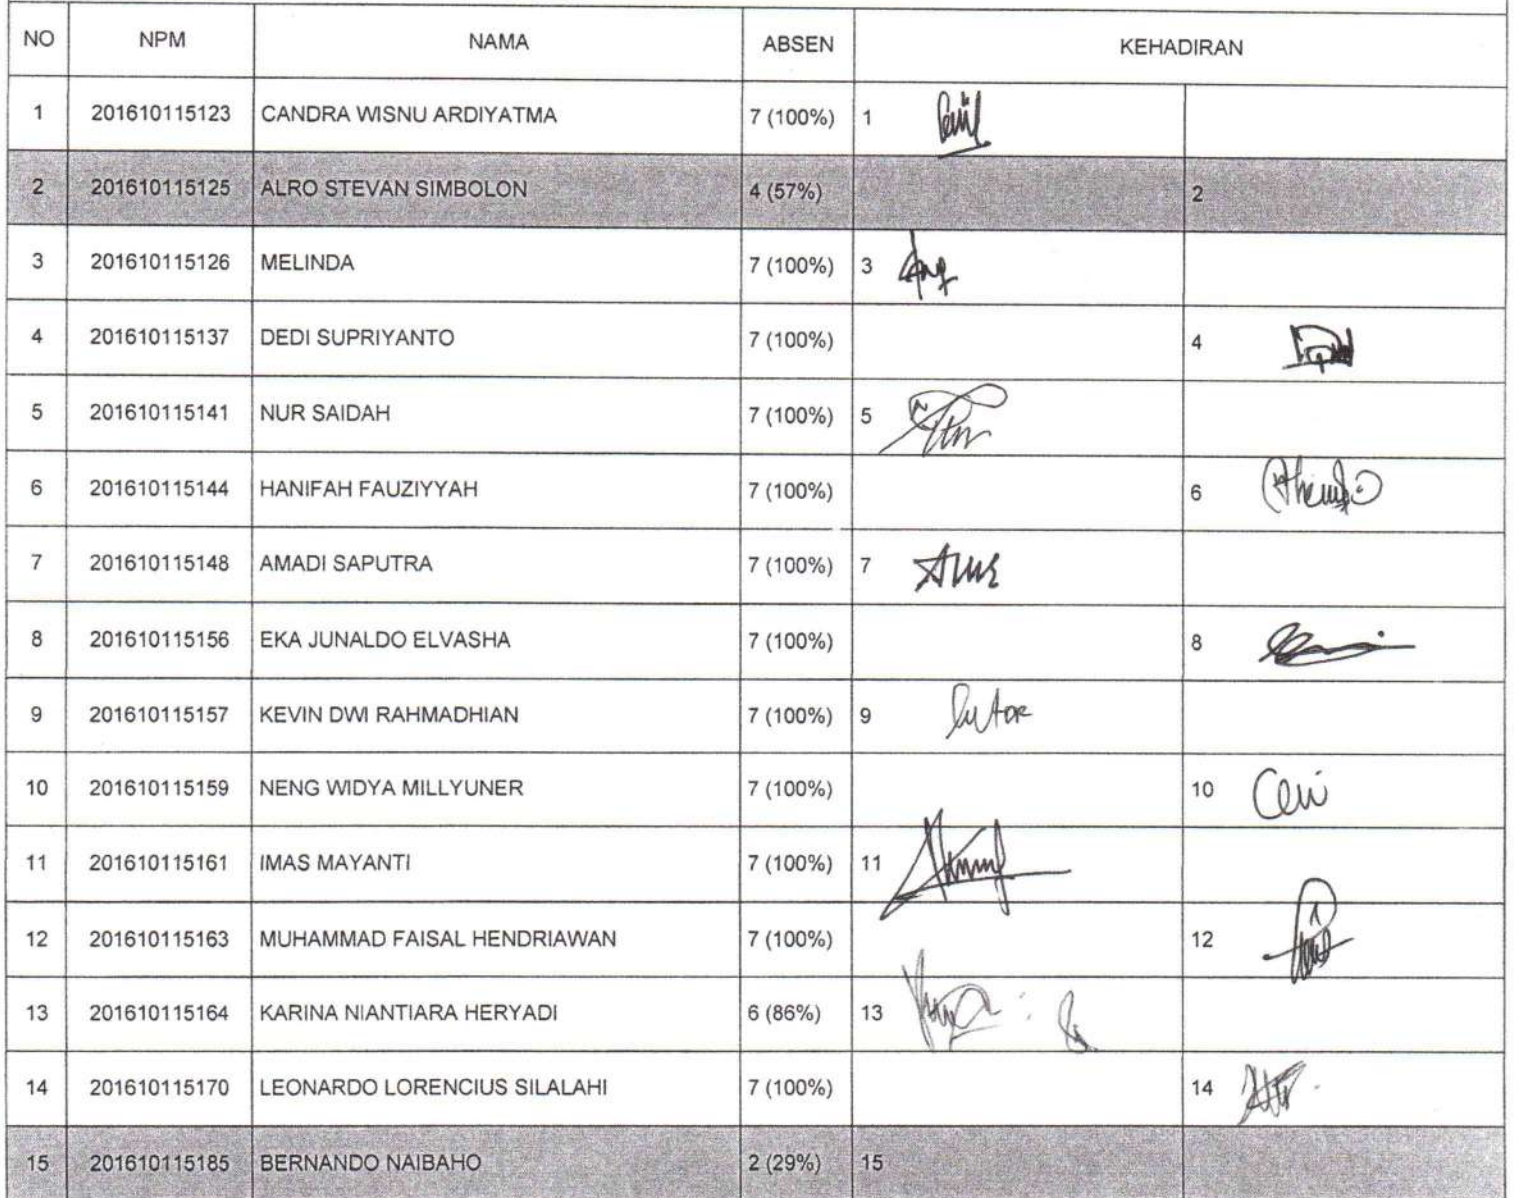 NO NPM NAMA ABSEN KEHADIRAN
1 201610115123 CANDRA WISNU ARDIYATMA 7 (100%) 1
2 201610115125 ALRO STEVAN SIMBOLON 4 (57%) 2
3 201610115126 MELINDA 7 (100%) 3
4 201610115137 DEDI SUPRIYANTO 7 (100%) 4
5 201610115141 NUR SAIDAH 7 (100%) 5
6 201610115144 HANIFAH FAUZIYYAH 7 (100%) 6
7 201610115148 AMADI SAPUTRA 7 (100%) 7
8 201610115156 EKA JUNALDO ELVASHA 7 (100%) 8
9 201610115157 KEVIN DWI RAHMADHIAN 7 (100%) 9
10 201610115159 NENG WIDYA MILLYUNER 7 (100%) 10
11 201610115161 IMAS MAYANTI 7 (100%) 11
12 201610115163 MUHAMMAD FAISAL HENDRIAWAN 7 (100%) 12
13 201610115164 KARINA NIANTIARA HERYADI 6 (86%) 13
14 201610115170 LEONARDO LORENCIUS SILALAHI 7 (100%) 14
15 201610115185 BERNANDO NAIBAHO 2 (29%) 15